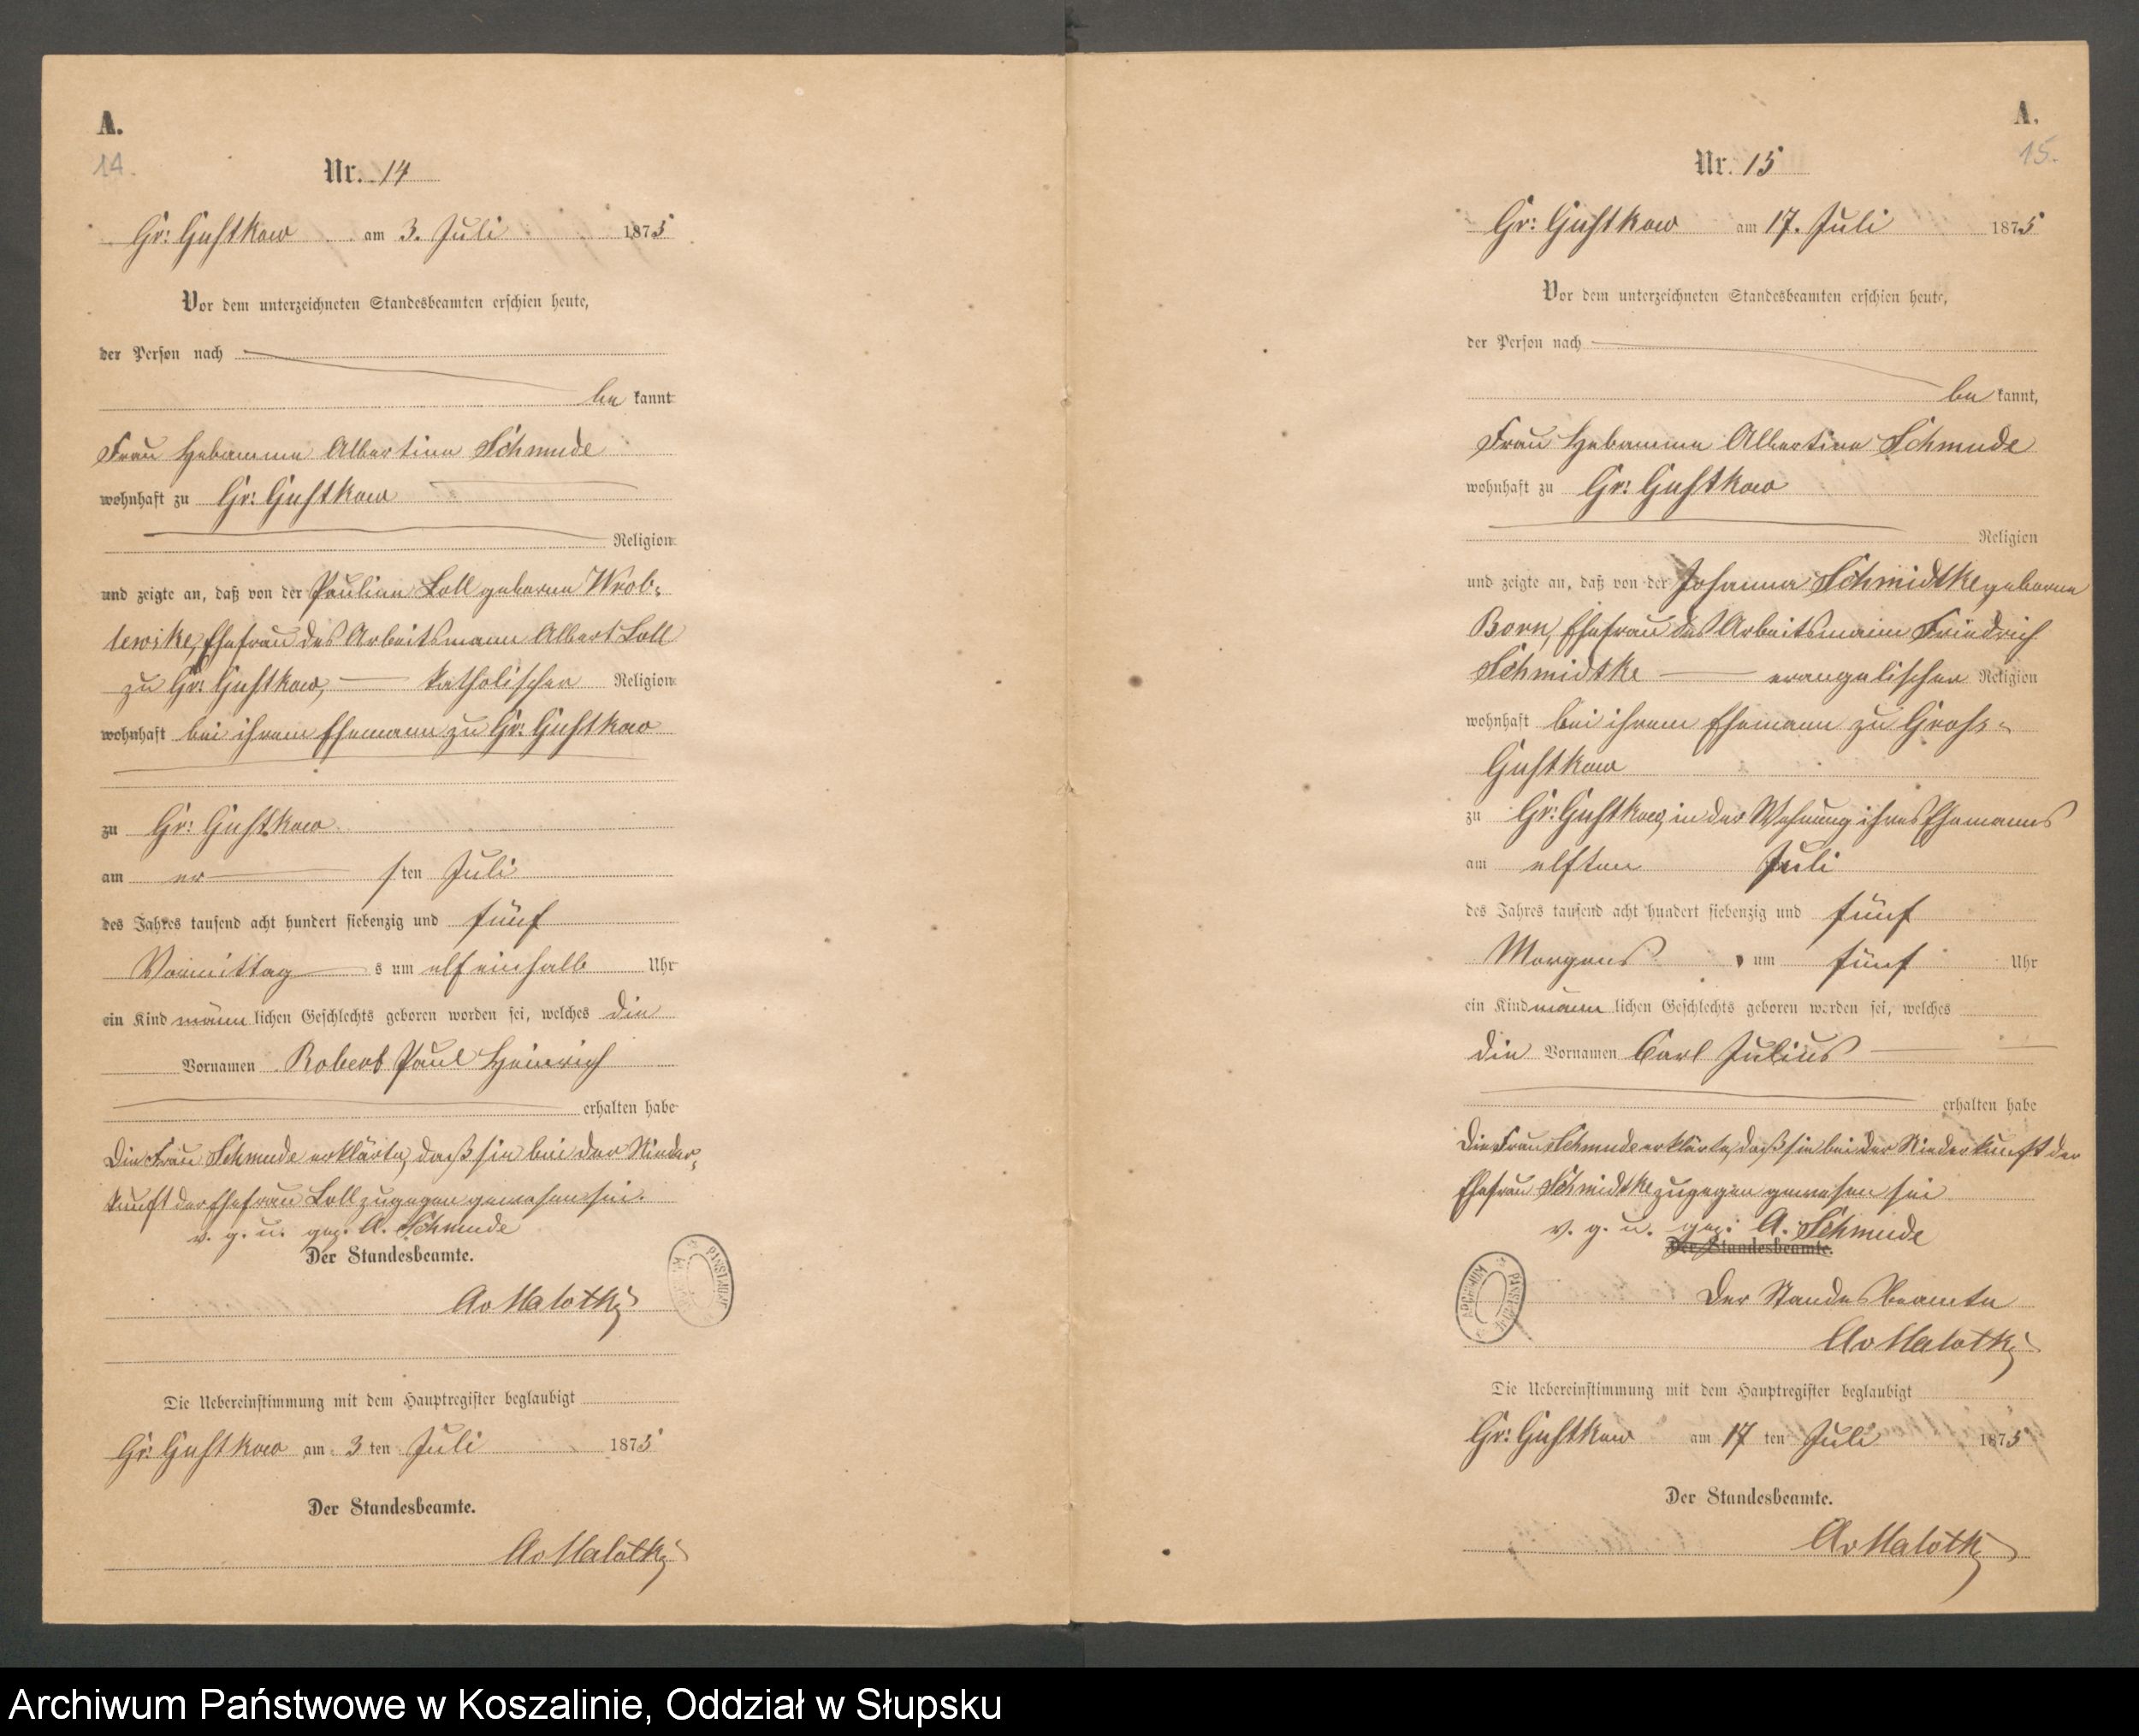 A.
14.
Nr. 14
Gr: Gustkow am 3. Juli 1875
Vor dem unterzeichneten Standesbeamten erschien heute,
der Person nach
be kannt
Frau Hebamme Albertine Schmude
wohnhaft zu Gr: Gustkow
Religion
und zeigte an, daß von der Pauline Loll geborne Wrob-
lewske, Ehefrau des Arbeitsmann Albert Loll
zu Gr: Gustkow, katholischer Religion
wohnhaft bei ihrem Ehemann zu Gr: Gustkow
zu Gr: Gustkow
am er 1 ten Juli
des Jahres tausend acht hundert siebenzig und fünf
Vormittag s um elf einhalb Uhr
ein Kind männ lichen Geschlechts geboren worden sei, welches die
Vornamen Robert Paul Heinrich
erhalten habe
Die Frau Schmude erklärte, daß sie bei der Nieder-
kunft der Ehefrau Loll zugegen gewesen sei.
v. g. u. gez. A. Schmude
Der Standesbeamte.
Av Malotky
Die Uebereinstimmung mit dem Hauptregister beglaubigt
Gr: Gustkow am 3 ten Juli 1875
Der Standesbeamte.
Av Malotky
A.
15.
Nr. 15
Gr: Gustkow am 17. Juli 1875
Vor dem unterzeichneten Standesbeamten erschien heute,
der Person nach
be kannt,
Frau Hebamme Albertine Schmude
wohnhaft zu Gr: Gustkow
Religion
und zeigte an, daß von der Johanna Schmidtke geborne
Born, Ehefrau des Arbeitsmann Friedrich
Schmidtke evangelischer Religion
wohnhaft bei ihrem Ehemann zu Gross-
Gustkow
zu Gr: Gustkow, in der Wohnung ihres Ehemanns
am elften Juli
des Jahres tausend acht hundert siebenzig und fünf
Morgens um fünf Uhr
ein Kind männ lichen Geschlechts geboren worden sei, welches
die Vornamen Carl Julius
erhalten habe
Die Frau Schmude erklärte, daß sie bei der Niederkunft der
Ehefrau Schmidtke zugegen gewesen sei
v. g. u. gez: A. Schmude
Der Standesbeamte.
Der Standesbeamte
Av Malotky
Die Uebereinstimmung mit dem Hauptregister beglaubigt
Gr: Gustkow am 17 ten Juli 1875
Der Standesbeamte.
Av Malotky
Archiwum Państwowe w Koszalinie, Oddział w Słupsku